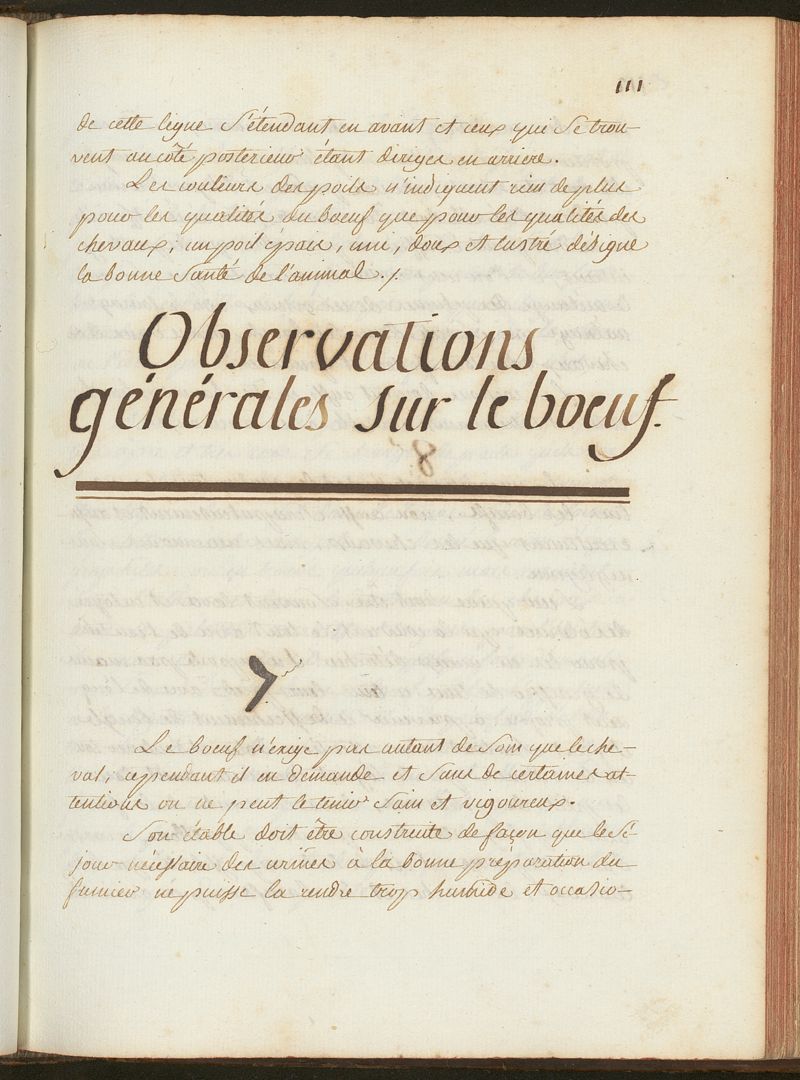 111
de cette ligne s'étendant en avant et ceux que se trou-
vent au côté posterieur étant diriges en arriere.
Les couleurs des poils n'indiquent rien de plus
pour les qualités du boeuf que pour les qualités des
chevaux; un poil épais, uni, doux et lustré désigne
la bonne santé de l'animal./.
Observations
générales sur le boeuf.
7
Le boeuf n'exige pas autant de soin que le che-
val, cependant il en demande et sans de certaines at-
tentions on ne peut le tenir sain et vigoureux.
Son étable doit être construite de façon que le sé-
jour nécessaire des urines à la bonne préparation du
fumier ne puisse la rendre trop humide et occasio-